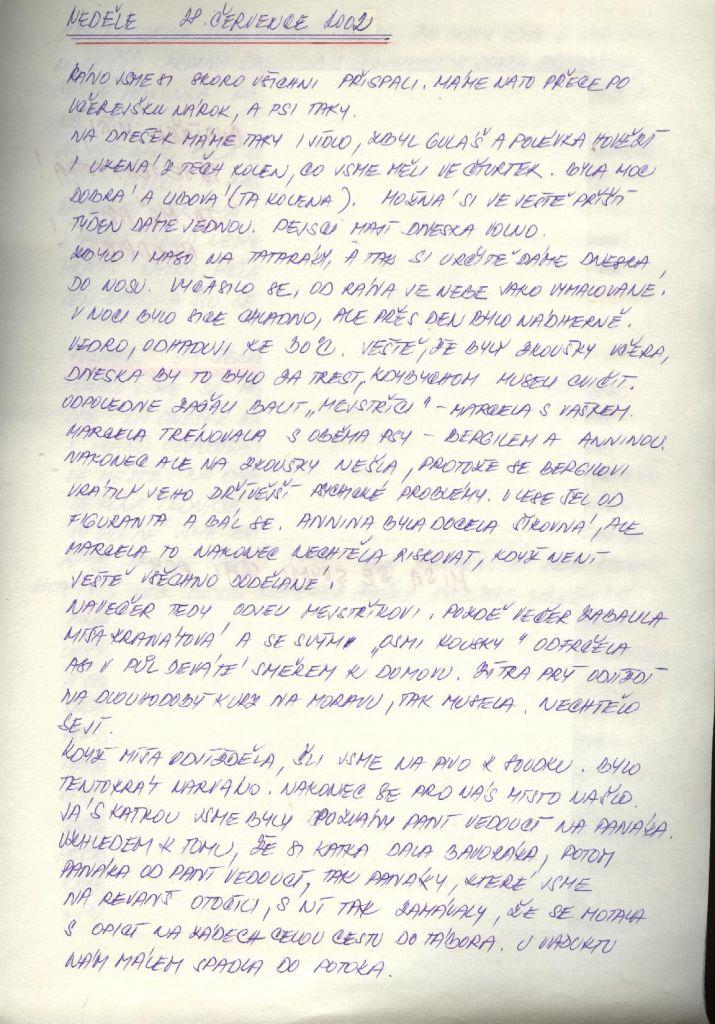 NEDĚLE 28. ČERVENCE 2002
RÁNO JSME SI SKORO VŠICHNI PŘISPALI. MÁME NA TO PŘECE PO
VČEREJŠKU NÁROK, A PSI TAKY.
NA DNEŠEK MÁME TAKY I JÍDLO, ZBYL GULÁŠ A POLÉVKA HOVĚZÍ
I UZENÁ Z TĚCH KOLEN, CO JSME MĚLI VE ČTVRTEK. BYLA MOC
DOBRÁ A LIBOVÁ (TA KOLENA). MOŽNÁ SI JE JEŠTĚ PŘÍŠTÍ
TÝDEN DÁME JEDNOU. PEJSCI MAJÍ DNESKA VOLNO.
ZBYLO I MASO NA TATARÁKY, A TAK SI URČITĚ DÁME DNESKA
DO NOSU. VYČASILO SE, OD RÁNA JE NEBE JAKO VYMALOVANÉ.
V NOCI BYLO SICE CHLADNO, ALE PŘES DEN BYLO NÁDHERNĚ.
VEDRO, ODHADUJI KE 30°C. JEŠTĚ, ŽE BYLY ZKOUŠKY VČERA,
DNESKA BY TO BYLO ZA TREST, KDYBYCHOM MUSELI CVIČIT.
ODPOLEDNE ZAČALI BALIT „MEJSTŘÍCI" - MARCELA S VAŠKEM.
MARCELA TRÉNOVALA S OBĚMA PSY - BERGILEM A ANNINOU.
NAKONEC ALE NA ZKOUŠKY NEŠLA, PROTOŽE SE BERGILOVI
VRÁTILY JEHO DŘÍVĚJŠÍ PSYCHICKÉ PROBLÉMY. V LESE ŠEL OD
FIGURANTA A BÁL SE. ANNINA BYLA DOCELA ŠIKOVNÁ, ALE
MARCELA TO NAKONEC NECHTĚLA RISKOVAT, KDYŽ NENÍ
JEŠTĚ VŠECHNO DODĚLANÉ.
NAVEČER TEDY ODJELI MEJSTŘÍKOVI. POZDĚ VEČER ZABALILA
MÍŠA KRANÁTOVÁ A SE SVÝMI „OSMI KOUSKY" ODFRČELA
ASI V PŮL DEVÁTÉ SMĚREM K DOMOVU. ZÍTRA PRÝ ODJÍŽDÍ
NA DLOUHODOBÝ KURZ NA MORAVU, TAK MUSELA. NECHTĚLO
SE JÍ.
KDYŽ MÍŠA ODJÍŽDĚLA, ŠLI JSME NA PIVO K SOUDKU. BYLO
TENTOKRÁT NARVÁNO. NAKONEC SE PRO NÁS MÍSTO NAŠLO.
JÁ S KATKOU JSME BYLY POZVÁNY PANÍ VEDOUCÍ NA PANÁKA.
VZHLEDEM K TOMU, ŽE SI KATKA DALA BAVORÁKA, POTOM
PANÁKA OD PANÍ VEDOUCÍ, TAK PANÁKY, KTERÉ JSME
NA REVANŠ OTOČILI, S NÍ TAK ZAMÁVALY, ŽE SE MOTALA
S OPICÍ NA ZÁDECH CELOU CESTU DO TÁBORA. U VIADUKTU
NÁM MÁLEM SPADLA DO POTOKA.